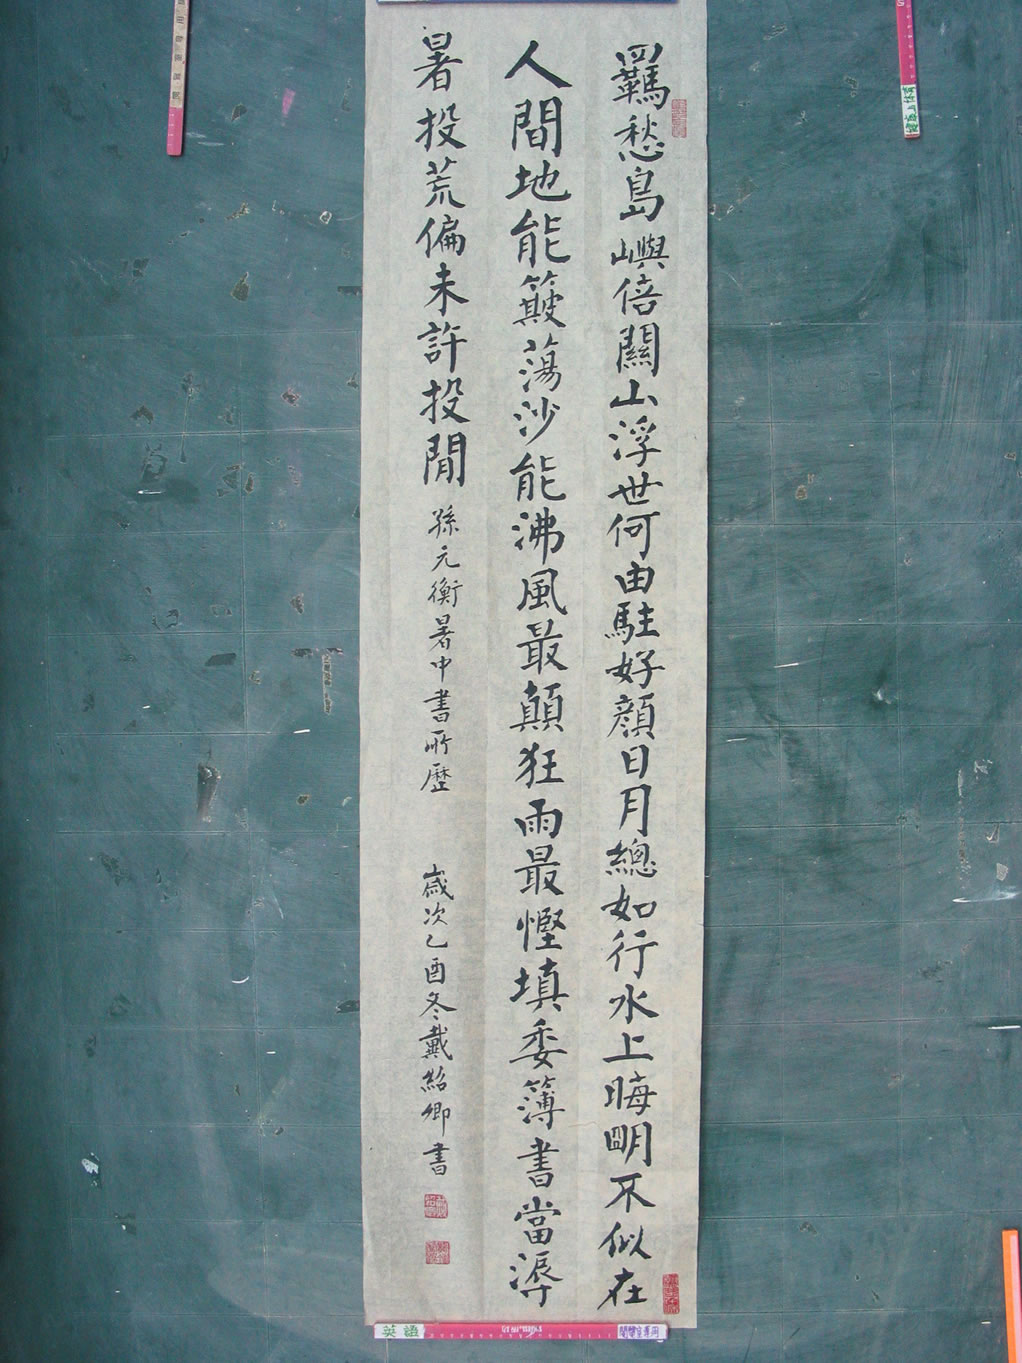 羈愁島嶼倍關山浮世何由駐好顏日月總如行水上晦明不似在
人間地能簸蕩沙能沸風最顛狂雨最慳填委簿書當溽
暑投荒偏未許投閒
孫元衡暑中書所歷
歲次乙酉冬戴紹卿書
英語